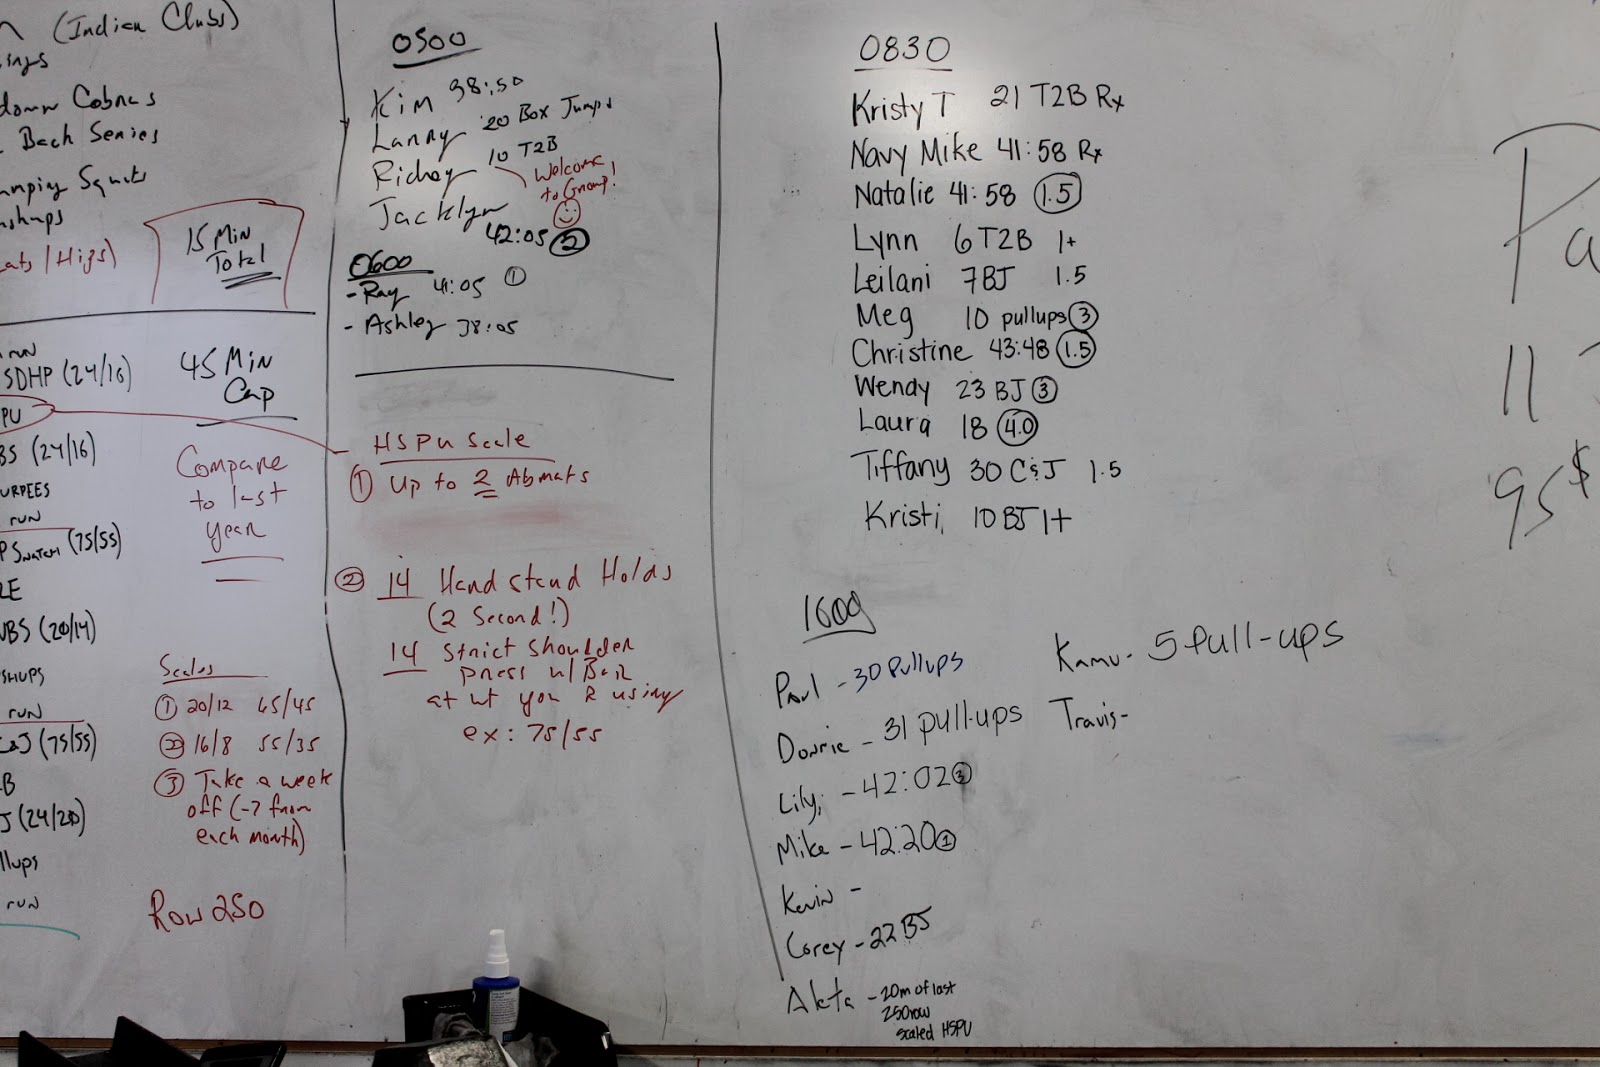 (Indian Clubs)
Cobras
Back Series
Squats
15 Min
Total
run
SDHP (24/16)
45 Min
Cap
PU
BS (24/16)
Compare
to last
year
run
Snatch (75/55)
(20/14)
run
J (75/55)
J (24/20)
run
Scales
① 20/12 65/45
② 16/8 55/35
③ Take a week
off (-7 from
each month)
Row 250
0500
Kim 38:50
Lanny 20 Box Jumps
Richey 10 T2B
Welcome
to Group!
Jacklyn
42:05 ②
0600
- Ray 41:05 ①
- Ashley 38:05
HSPU Scale
① Up to 2 Abmats
② 14 Hand stand Holds
(2 Second!)
14 Strict Shoulder
press w/Bar
at wt you R using
ex: 75/55
0830
Kristy T 21 T2B Rx
Navy Mike 41:58 Rx
Natalie 41:58 1.5
Lynn 6 T2B 1+
Leilani 7BJ 1.5
Meg 10 pullups ③
Christine 43:48 1.5
Wendy 23 BJ ③
Laura 18 4.0
Tiffany 30 C&J 1.5
Kristi 10 BJ 1+
1600
Paul - 30 Pullups
Donnie - 31 pull-ups
Lily - 42:02 ③
Mike - 42:20 ①
Kevin -
Corey - 22 BJ
- 20m of last
250 row
scaled HSPU
Kamu - 5 Pull-ups
Travis -
Pa
11
95$